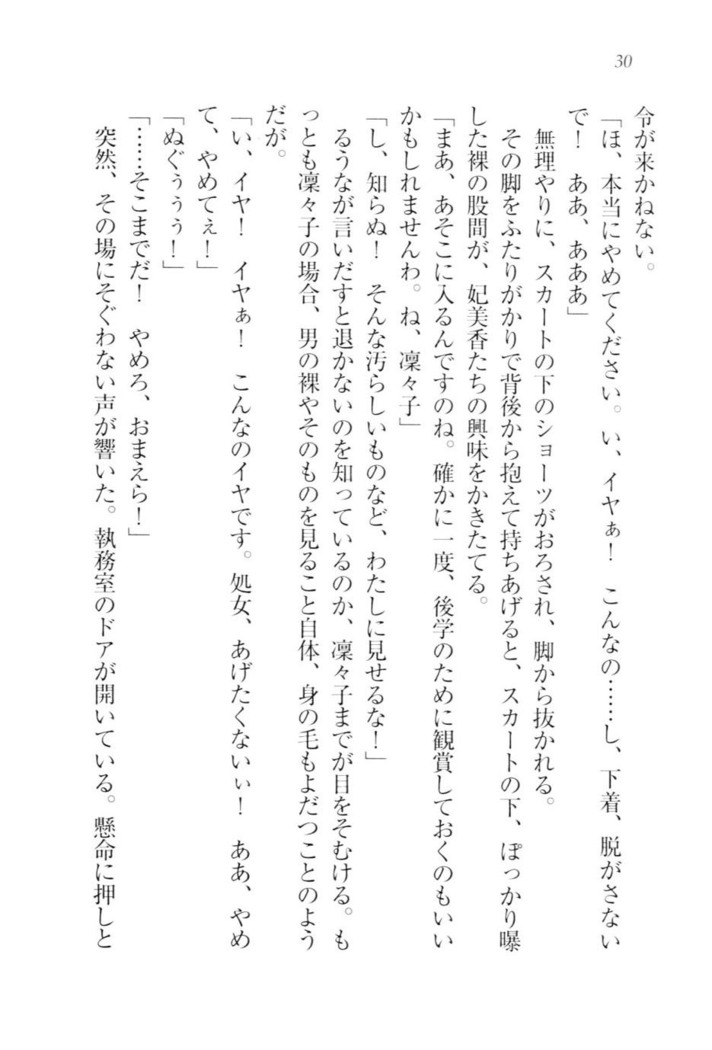 30
令が来かねない。
「ほ、本当にやめてください。い、イヤぁ！　こんなの……し、下着、脱がさない
で！　ああ、あああ」
無理やりに、スカートの下のショーツがおろされ、脚から抜かれる。
その脚をふたりがかりで背後から抱えて持ちあげると、スカートの下、ぽっかり曝
した裸の股間が、妃美香たちの興味をかきたてる。
「まあ、あそこに入るんですのね。確かに一度、後学のために観賞しておくのもいい
かもしれませんわ。ね、凜々子」
「し、知らぬ！　そんな汚らしいものなど、わたしに見せるな！」
るうなが言いだすと退かないのを知っているのか、凜々子までが目をそむける。も
っとも凜々子の場合、男の裸やそのものを見ること自体、身の毛もよだつことのよう
だが。
「い、イヤ！　イヤぁ！　こんなのイヤです。処女、あげたくないぃ！　ああ、やめ
て、やめてぇ！」
「ぬぐぅぅぅ！」
「……そこまでだ！　やめろ、おまえら！」
突然、その場にそぐわない声が響いた。執務室のドアが開いている。懸命に押しと